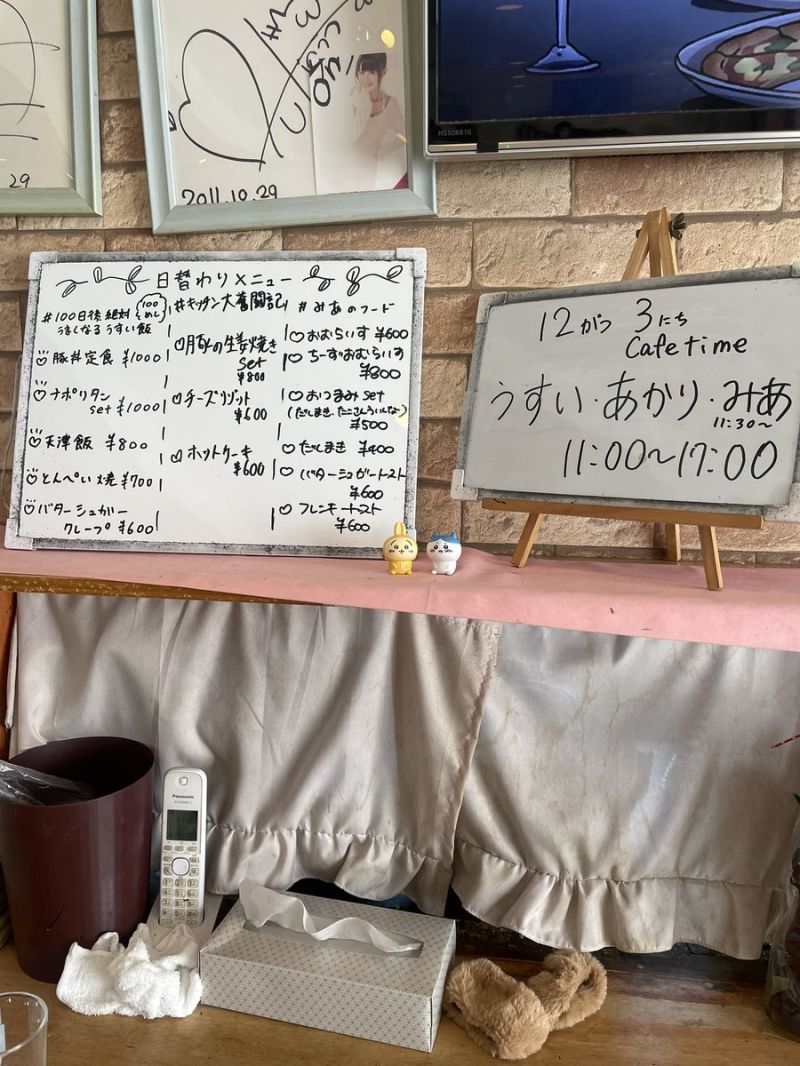 29
2011.10.29
HS50K610
日替わりメニュー
#100日後 絶対
うまくなる うすい飯
100
めし
豚丼定食 ¥1000
ナポリタン
set ¥1000
天津飯 ¥800
とんぺい焼 ¥700
バターシュガー
クレープ ¥600
#キッチン大奮闘記
の生姜焼き
set
¥800
チーズリゾット
¥600
ホットケーキ
¥600
#みあのフード
おむらいす ¥600
ちーずおむらいす
¥800
おつまみ set
(だしまき、たこさんういんなー)
¥500
だしまき ¥400
バターシュガートースト
¥600
フレンチトースト
¥600
12がつ 3にち
Cafe time
うすい・あかり・みあ
11:30~
11:00~17:00
Panasonic